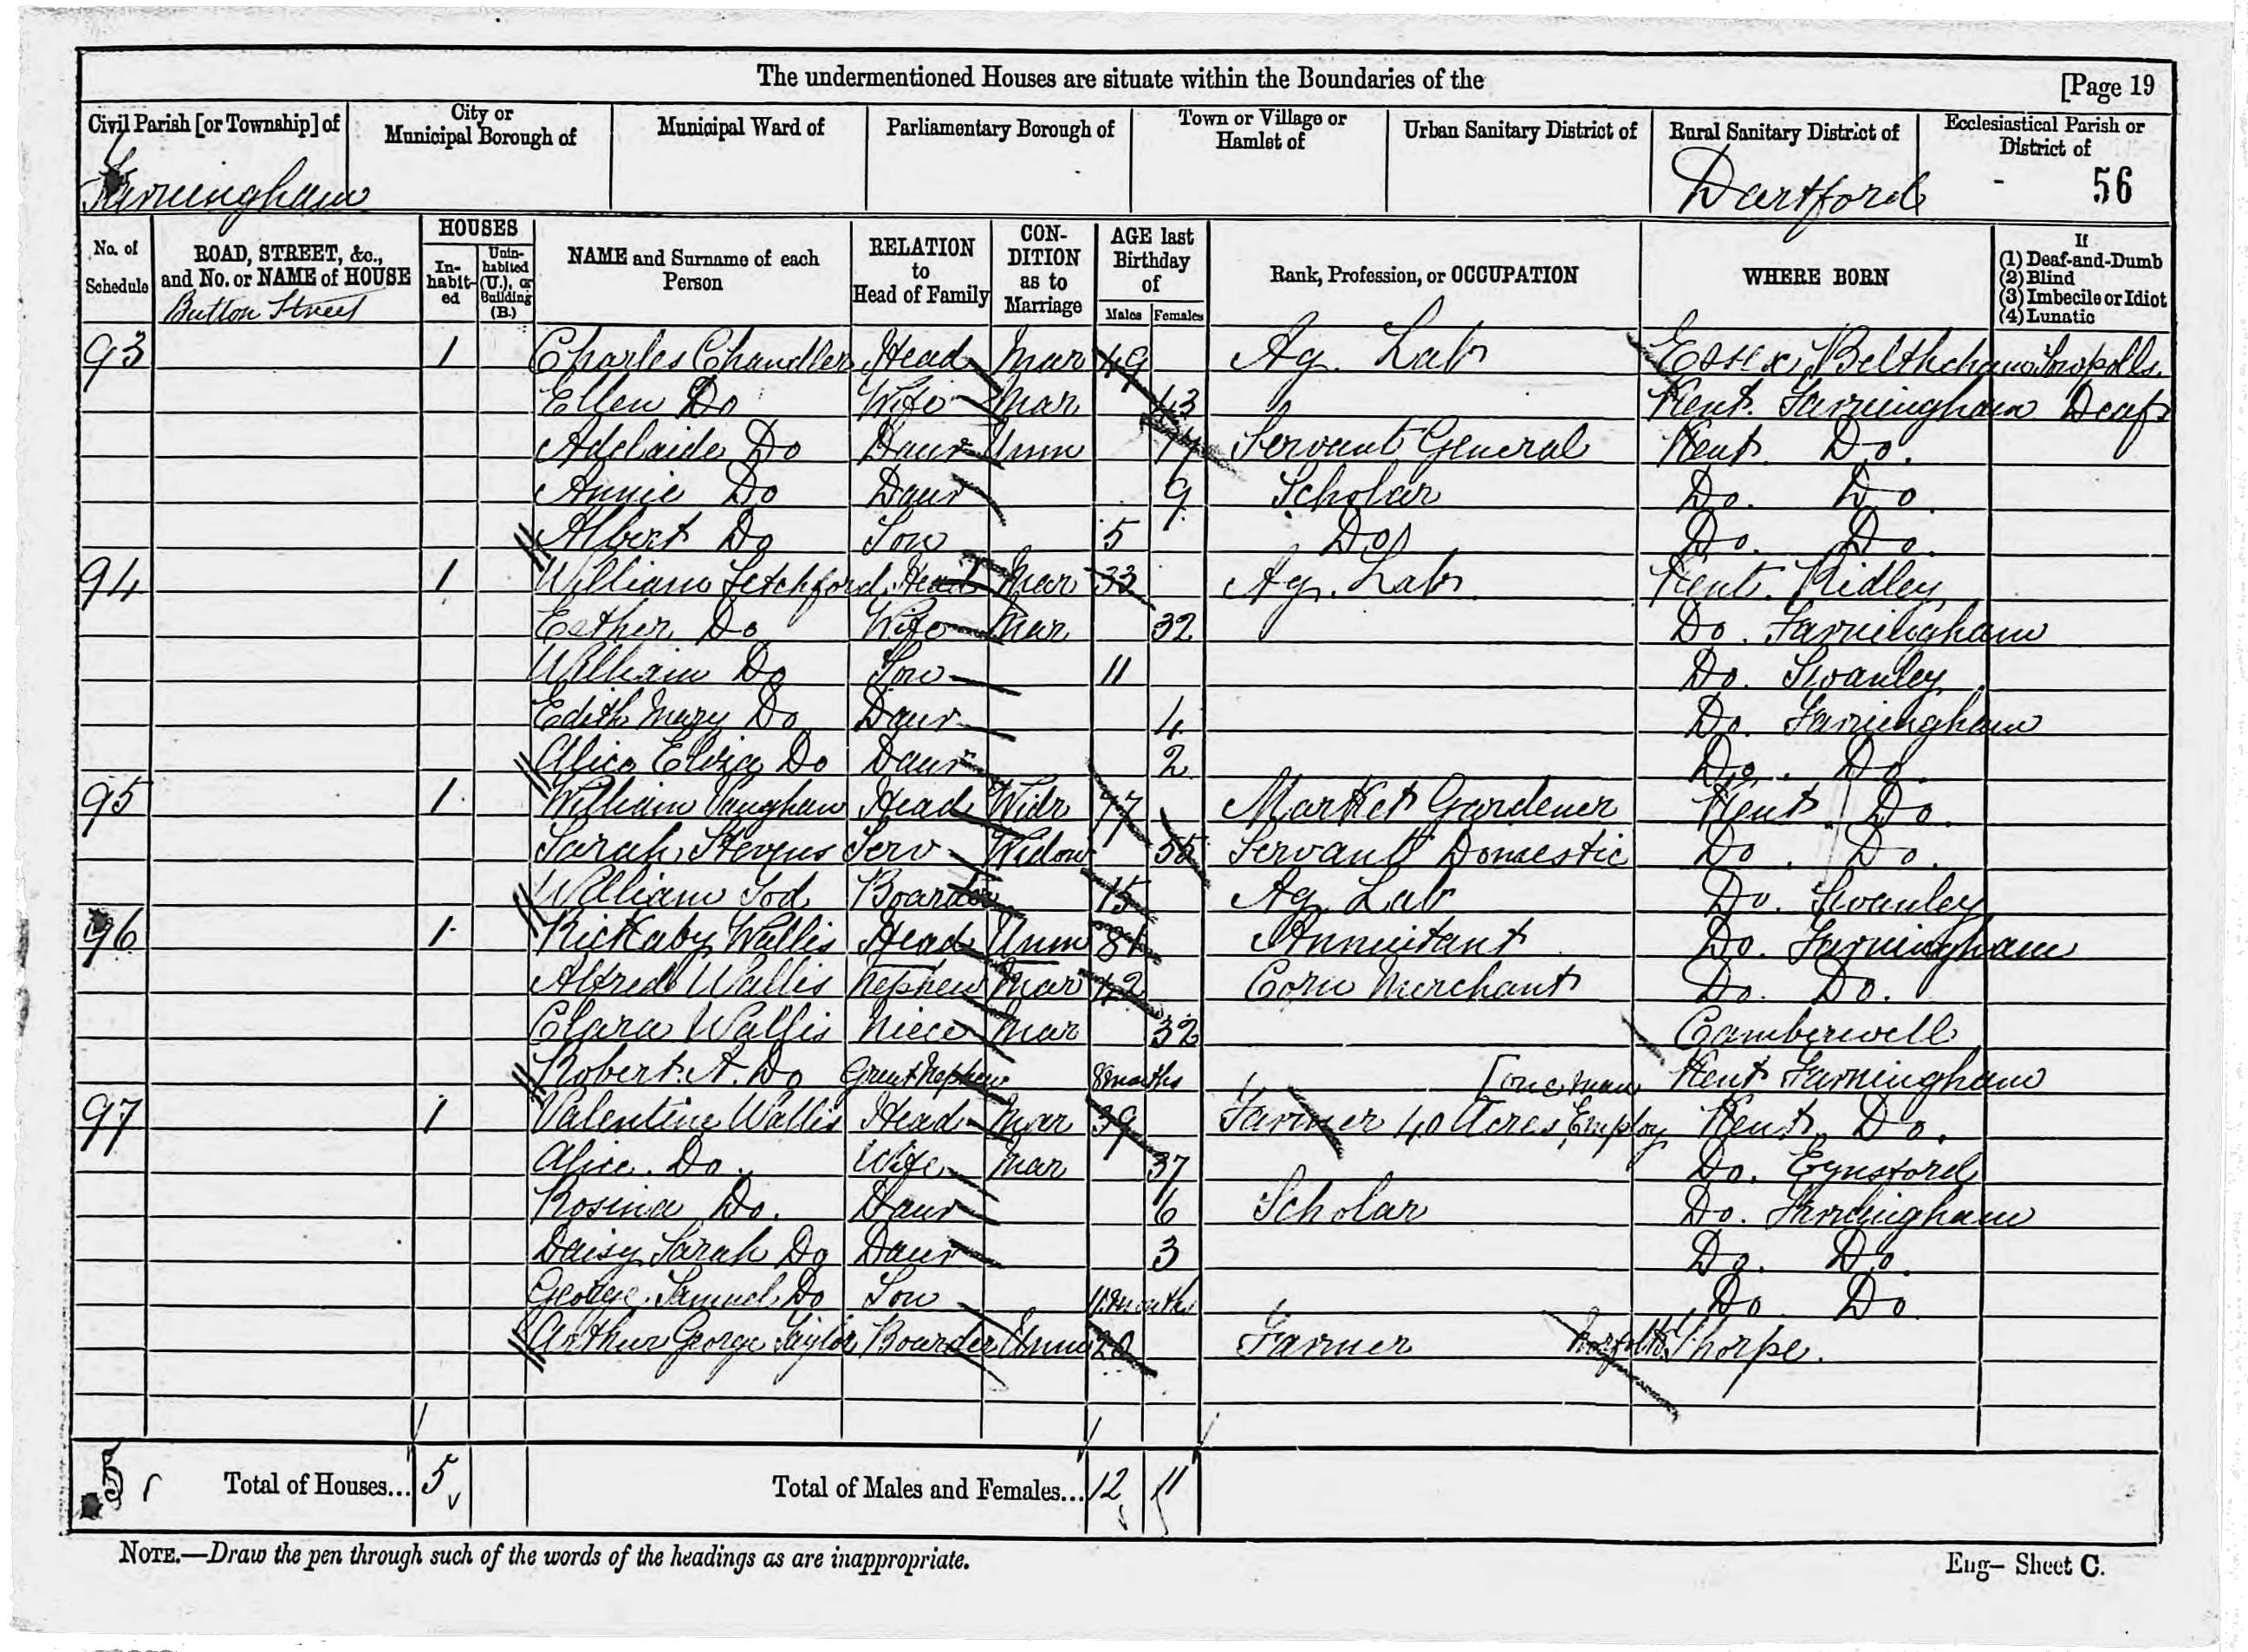 The undermentioned Houses are situate within the Boundaries of the [Page 19
Civil Parish [or Township] of City or Municipal Borough of Municipal Ward of Parliamentary Borough of Town or Village or Hamlet of Urban Sanitary District of Rural Sanitary District of Ecclesiastical Parish or District of
Farningham Dartford - 56
No. of Schedule ROAD, STREET, &c., and No. or NAME of HOUSE HOUSES Inhabited Uninhabited (U.), or Building (B.) NAME and Surname of each Person RELATION to Head of Family CONDITION as to Marriage AGE last Birthday of Males Females Rank, Profession, or OCCUPATION WHERE BORN If (1) Deaf-and-Dumb (2) Blind (3) Imbecile or Idiot (4) Lunatic
Button Street
93 1 Charles Chandler Head Mar 49 Ag. Lab Essex,
Ellen Do Wife Mar 43 Kent. Farningham Deaf
Adelaide Do Daur Unm Servant General Kent. Do.
Annie Do Daur 9 Scholar Do. Do.
Albert Do Son 5 Do Do. Do.
94 1 William Letchford Head Mar 33 Ag. Lab Kent. Ridley
Esther Do Wife Mar 32 Do. Farningham
William Do Son 11 Do. Swanley
Edith Mary Do Daur 4 Do. Farningham
Alice Eliza Do Daur 2 Do. Do.
95 1 William Vaughan Head Widr 77 Market Gardener Kent. Do.
Sarah Stevens Serv Widow 55 Servant Domestic Do. Do.
William Tod Boarder 15 Ag Lab Do. Swanley
96 1 Rickaby Wallis Head Unm 81 Annuitant Do. Farningham
Alfred Wallis Nephew Mar 42 Corn Merchant Do. Do.
Clara Wallis Niece Mar 32 Camberwell
Robert. A. Do Great Nephew 8 months Kent Farningham
97 1 Valentine Wallis Head Mar 39 Farmer 40 Acres, Employ [one man Kent. Do.
Alice. Do. Wife Mar 37 Do. Eynsford
Rosina Do. Daur 6 Scholar Do. Farningham
Daisy Sarah Do Daur 3 Do. Do.
George Samuel Do Son months Do Do
Arthur George Taylor Boarder Unm 20 Farmer Norfolk Thorpe.
Total of Houses... 5 Total of Males and Females... 12 11
NOTE.—Draw the pen through such of the words of the headings as are inappropriate.
Eng— Sheet C.